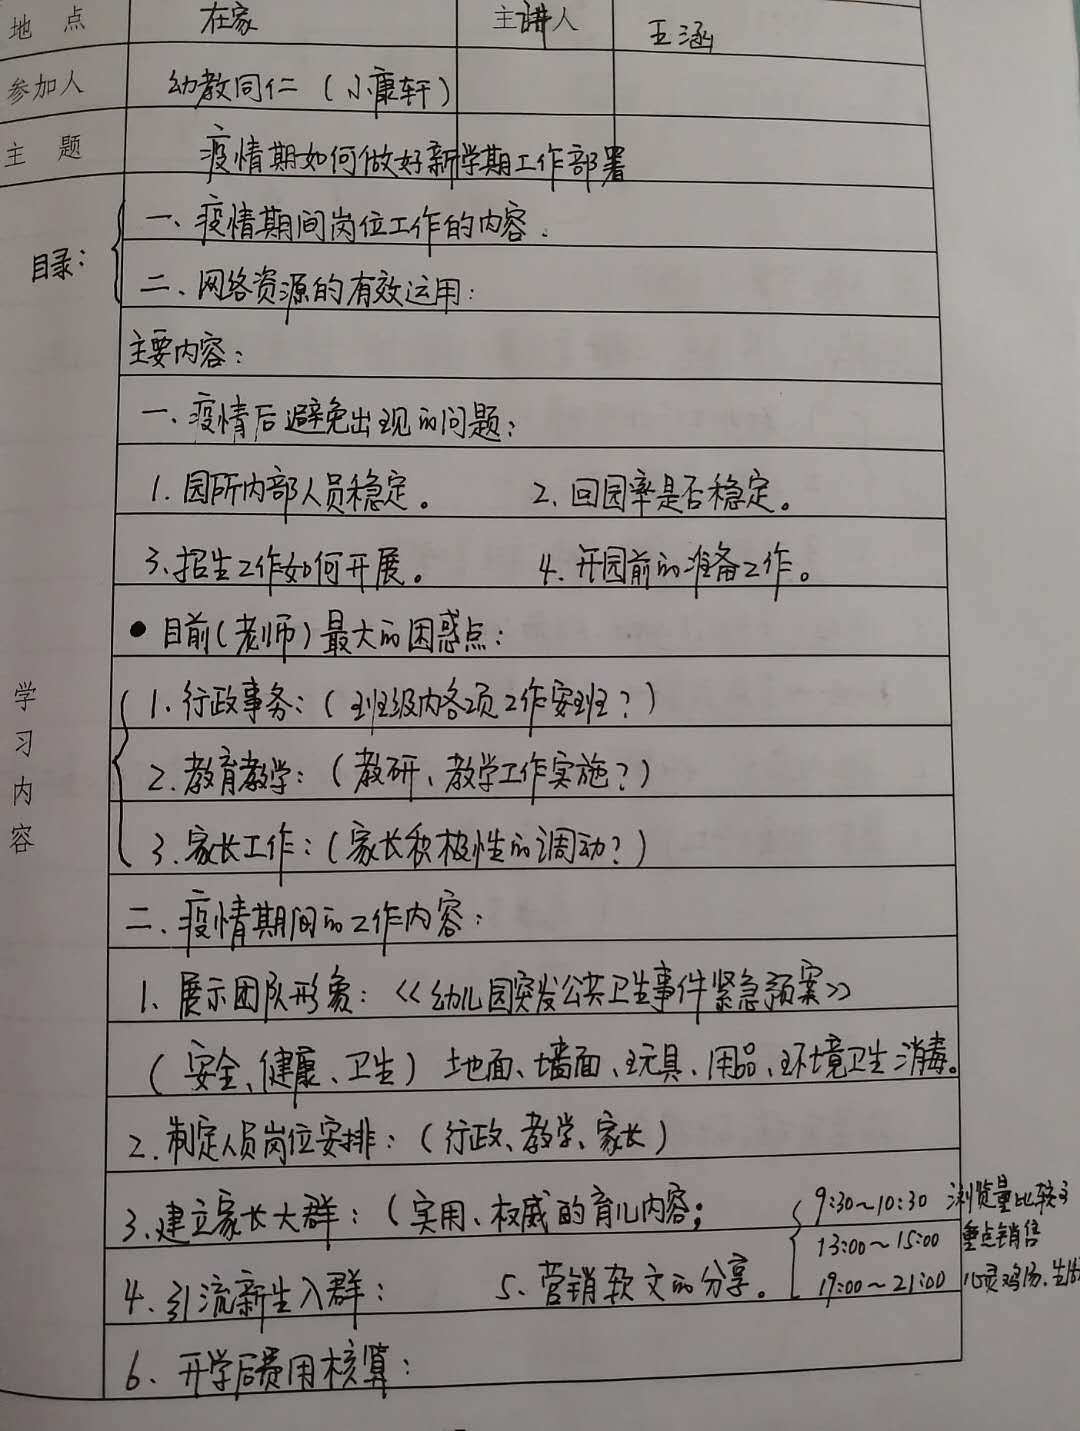 地 点 在家 主讲人 王涵
参加人 幼教同仁（小康轩）
主 题 疫情期如何做好新学期工作部署
目录：
一、疫情期间岗位工作的内容.
二、网络资源的有效运用：
主要内容：
一、疫情后避免出现的问题：
1. 园所内部人员稳定。 2. 回园率是否稳定。
3. 招生工作如何开展。 4. 开园前的准备工作。
● 目前（老师）最大的困惑点：
学习内容
1. 行政事务：（班级内各项工作安班？）
2. 教育教学：（教研、教学工作实施？）
3. 家长工作：（家长积极性的调动？）
二、疫情期间的工作内容：
1、展示团队形象：《幼儿园突发公共卫生事件紧急预案》
（安全、健康、卫生）地面、墙面、玩具、用品、环境卫生消毒。
2. 制定人员岗位安排：（行政、教学、家长）
3、建立家长大群：（实用、权威的育儿内容；
9:30~10:30 浏览量比较
13:00~15:00 重点销售
19:00~21:00 心灵鸡汤、生活
4、引流新生入群： 5、营销软文的分享。
6、开学后费用核算：